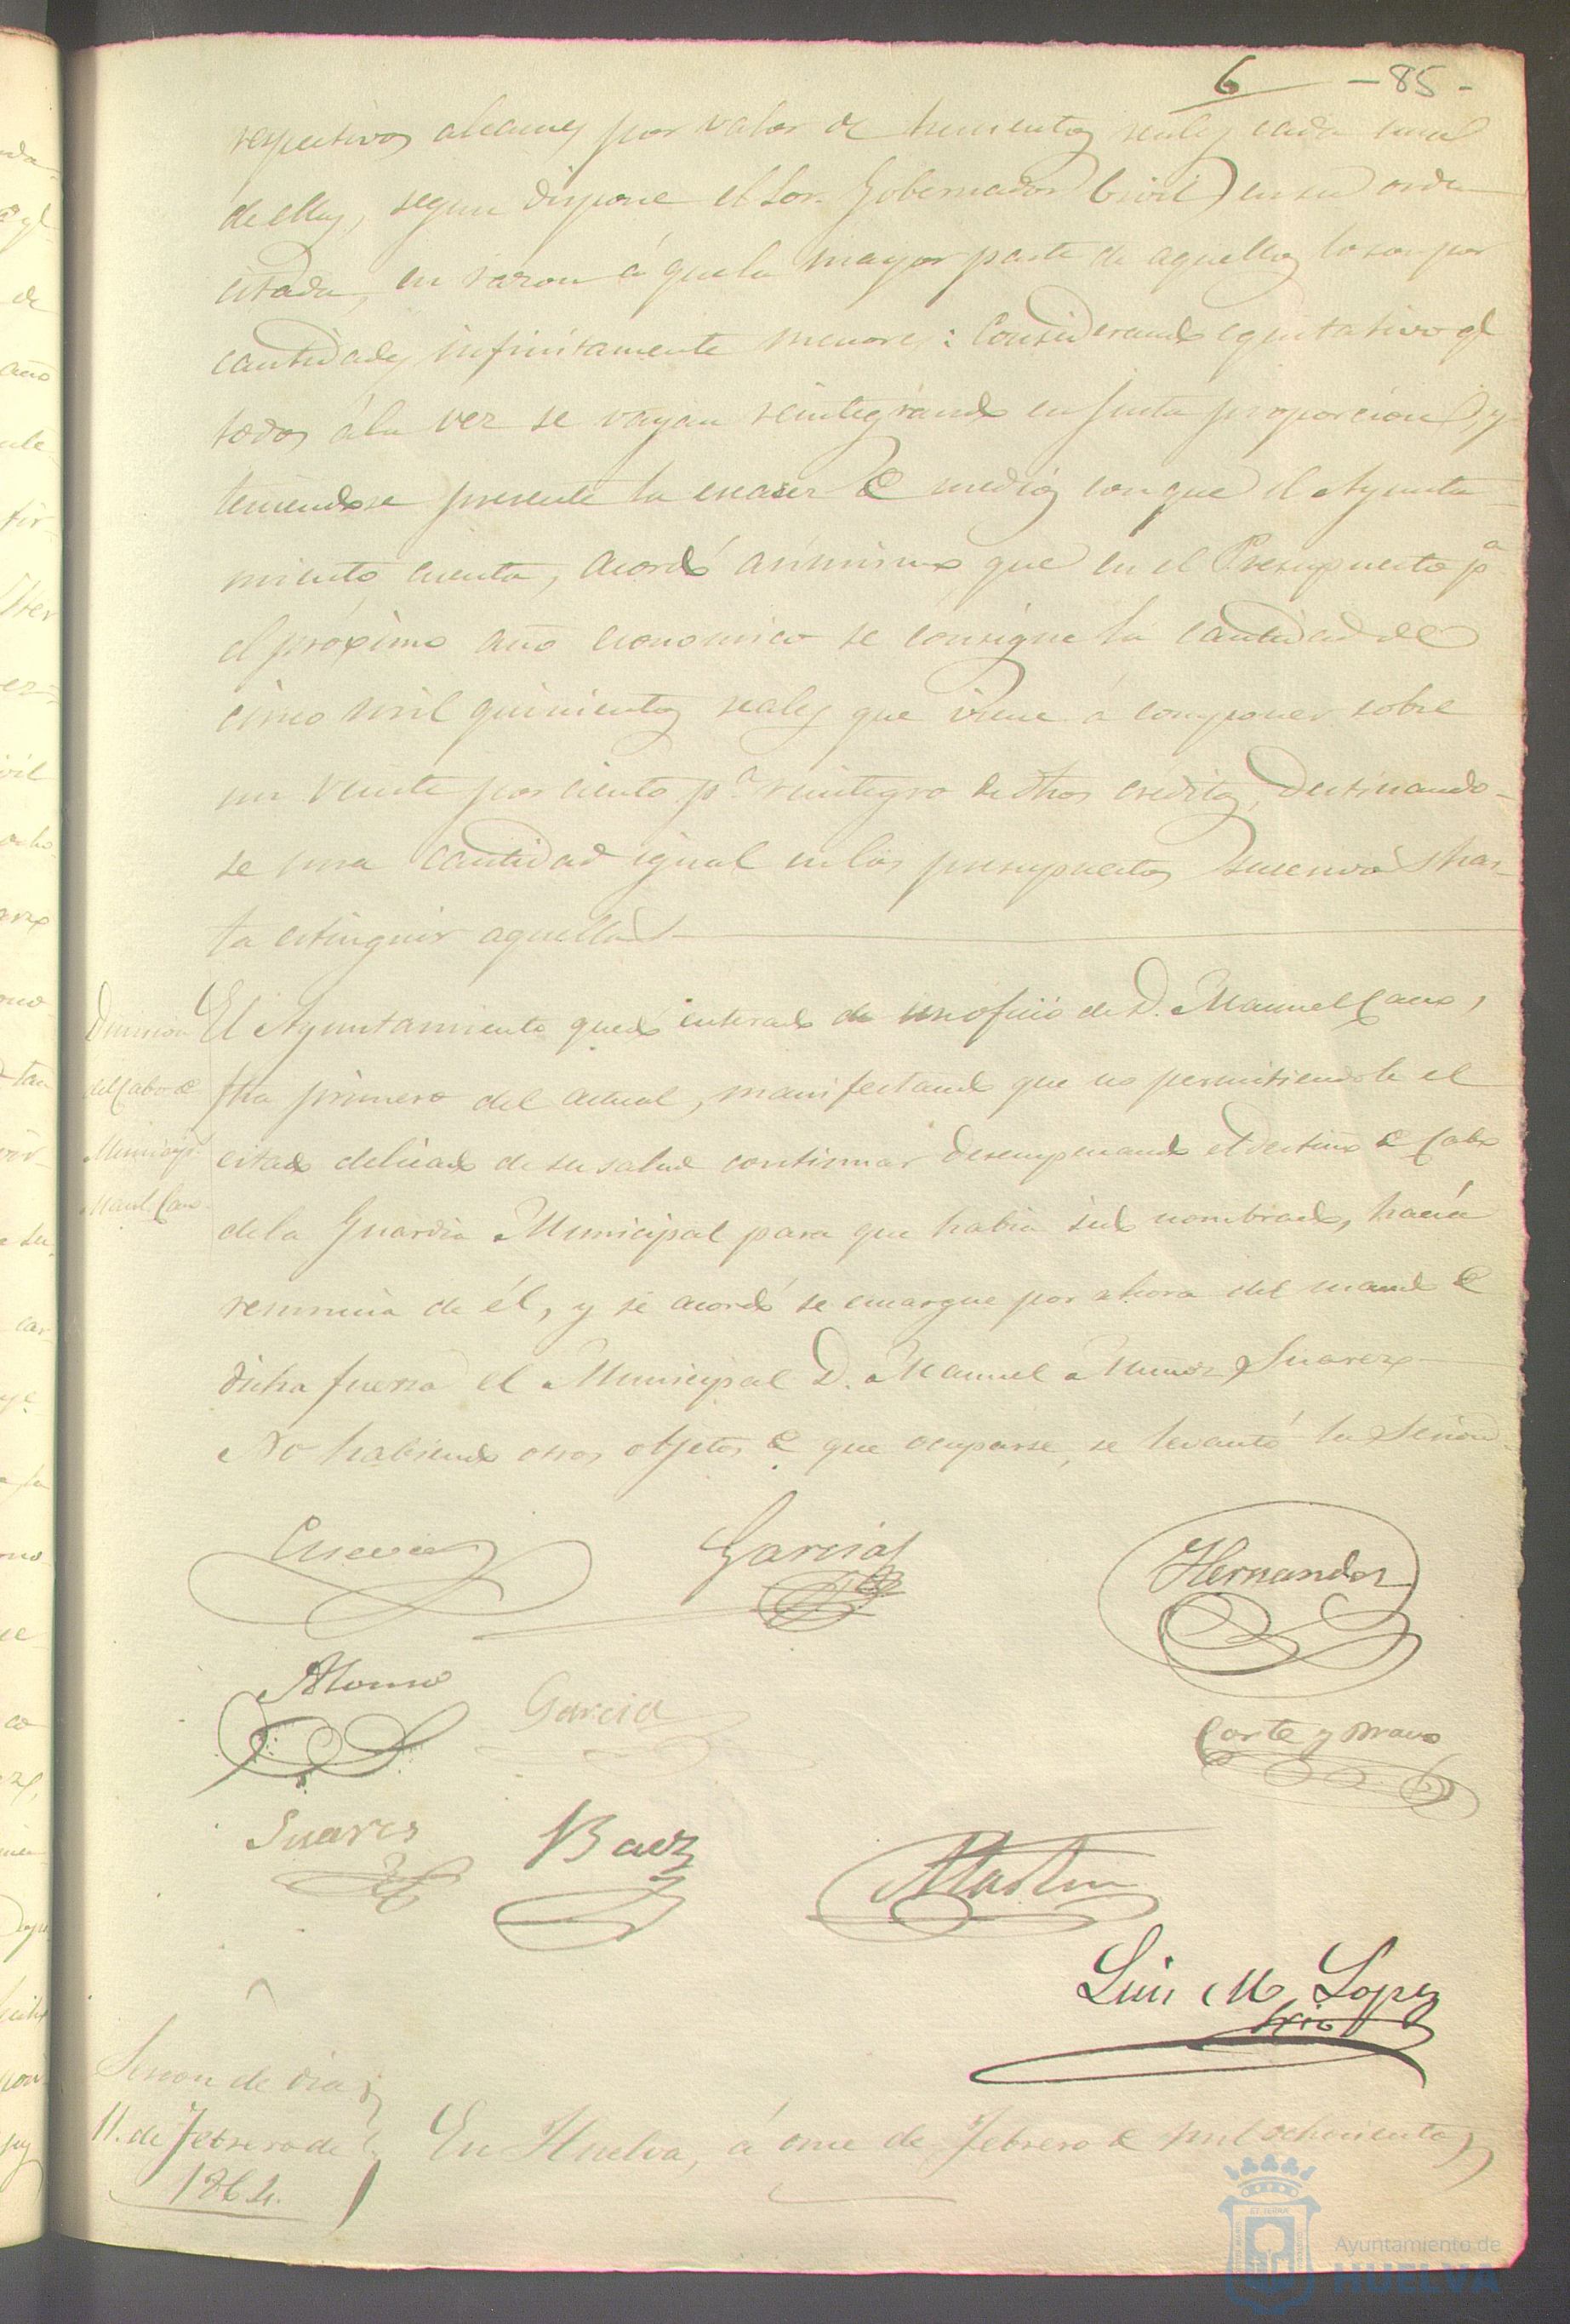 6 — 85 -
respectivos alcances por valor de trescientos reales cada uno
de ellos, segun dispone el Sor. Gobernador Civil en su orden
citada, en razon á que la mayor parte de aquellos lo son por
cantidades infinitamente menores: Considerando equitativo q.e
todos á la vez se vayan reintegrando en justa proporcion, y
teniendose presente la escasez de medios con que el Ayunta-
miento cuenta, acordó asimismo que en el Presupuesto p.a
el próximo año economico se consigne la cantidad de
cinco mil quinientos reales que viene á componer sobre
un veinte por ciento p.a reintegro de dhos creditos, destinando-
se una cantidad igual en los presupuestos sucesivos has-
ta estinguir aquellos.
Dimision
del Cabo de
Municip.s
Man.l Cano.
El Ayuntamiento quedó enterado de un oficio de D. Manuel Cano,
fha primero del actual, manifestando que no permitiendole el
estado delicado de su salud continuar desempeñando el destino de Cabo
de la Guardia Municipal para que habia sido nombrado, hacía
renuncia de él, y se acordó se encargue por ahora del mando de
dicha fuerza el Municipal D. Manuel Muñoz Suarez.
No habiendo otros objetos de que ocuparse, se levantó la Sesion.
Garcia
Hernandez
Alonso
Garcia
Corte y Bravo
Suares
Baez
Martin
Luis M. Lopez
Srio
Sesion de dia
11. de Febrero de
1864.
En Huelva, á once de Febrero de mil ochocientos
Ayuntamiento de
HUELVA